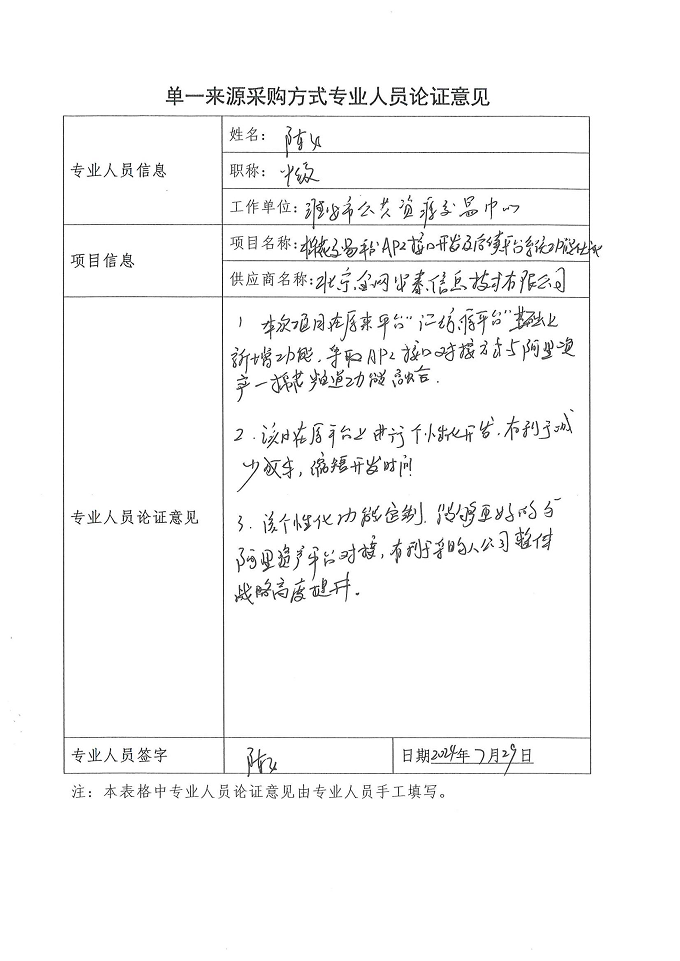 单一来源采购方式专业人员论证意见
专业人员信息
姓名：
职称：中级
工作单位：公共资源交易中心
项目信息
项目名称：交易平台API接口开发及后续平台系统
供应商名称：北京金网安泰信息技术有限公司
专业人员论证意见
1 本次项目在原来平台"平台"基础上
新增功能，采取API接口对接方式与阿里资
产一拍卖频道功能融合．
2．该项目在原平台上进行个性化开发，有利于减
少成本，缩短开发时间
3．该个性化功能定制，能够更好的与
阿里资产平台对接，有利于采购人公司整体
战略高度提升．
专业人员签字
日期2024年7月29日
注：本表格中专业人员论证意见由专业人员手工填写。